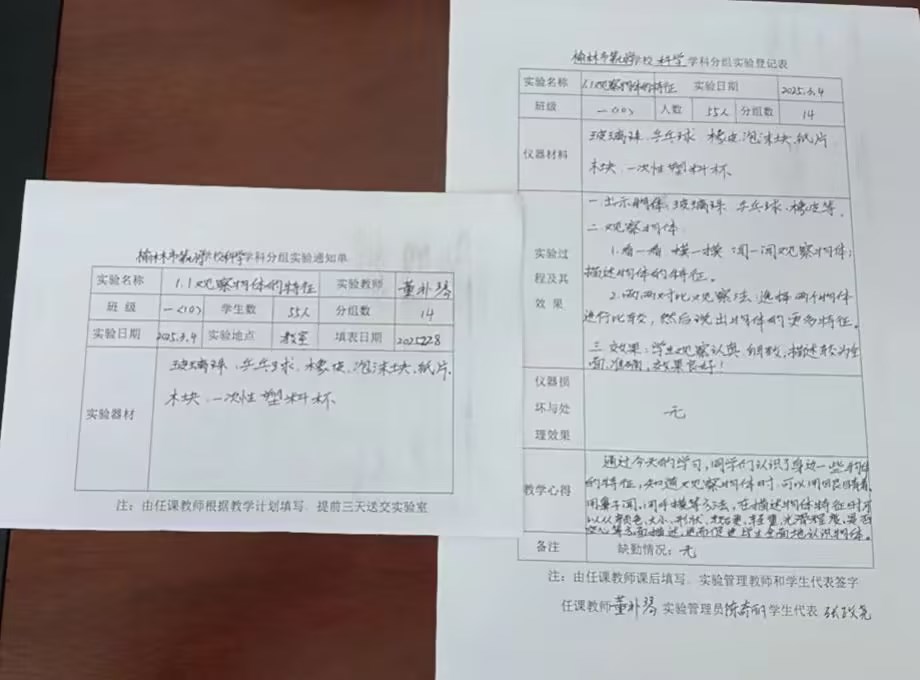 榆林市第 学校科学学科分组实验通知单
实验名称 1.1观察物体的特征 实验教师 董补琴
班 级 一<10> 学生数 55人 分组数 14
实验日期 2025.3.4 实验地点 教室 填表日期 2025228
玻璃珠、乒乓球、橡皮、泡沫块、纸片、
木块、一次性塑料杯
实验器材
注：由任课教师根据教学计划填写 提前三天送交实验室
榆林市第 学校 科学 学科分组实验登记表
实验名称 1.1观察物体的特征 实验日期 2025.3.4
班级 一<10> 人数 55人 分组数 14
仪器材料
玻璃珠、乒乓球、橡皮、泡沫块、纸片
木块、一次性塑料杯
实验过
程及其
效 果
一、出示物体：玻璃珠、乒乓球、橡皮等。
二、观察物体
1.看一看 摸一摸 闻一闻观察物体，
描述物体的特征。
2.两两对比观察法，选择两个物体
进行比较，然后说出物体的更多特征。
三、效果：学生观察认真、仔细，描述较为全
面、准确，效果良好！
仪器损
坏与处
理效果
无
教学心得
通过今天的学习，同学们认识了身边一些物体
的特征，知道观察物体时，可以用眼睛看、
用鼻子闻、用手摸等方法，在描述物体特征时可
以从颜色、大小、形状、 、轻重、光滑程度、是否
空心等方面描述， 促进学生全面地认识物体。
备注 缺勤情况：无
注：由任课教师课后填写、实验管理教师和学生代表签字
任课教师 董补琴 实验管理员 学生代表